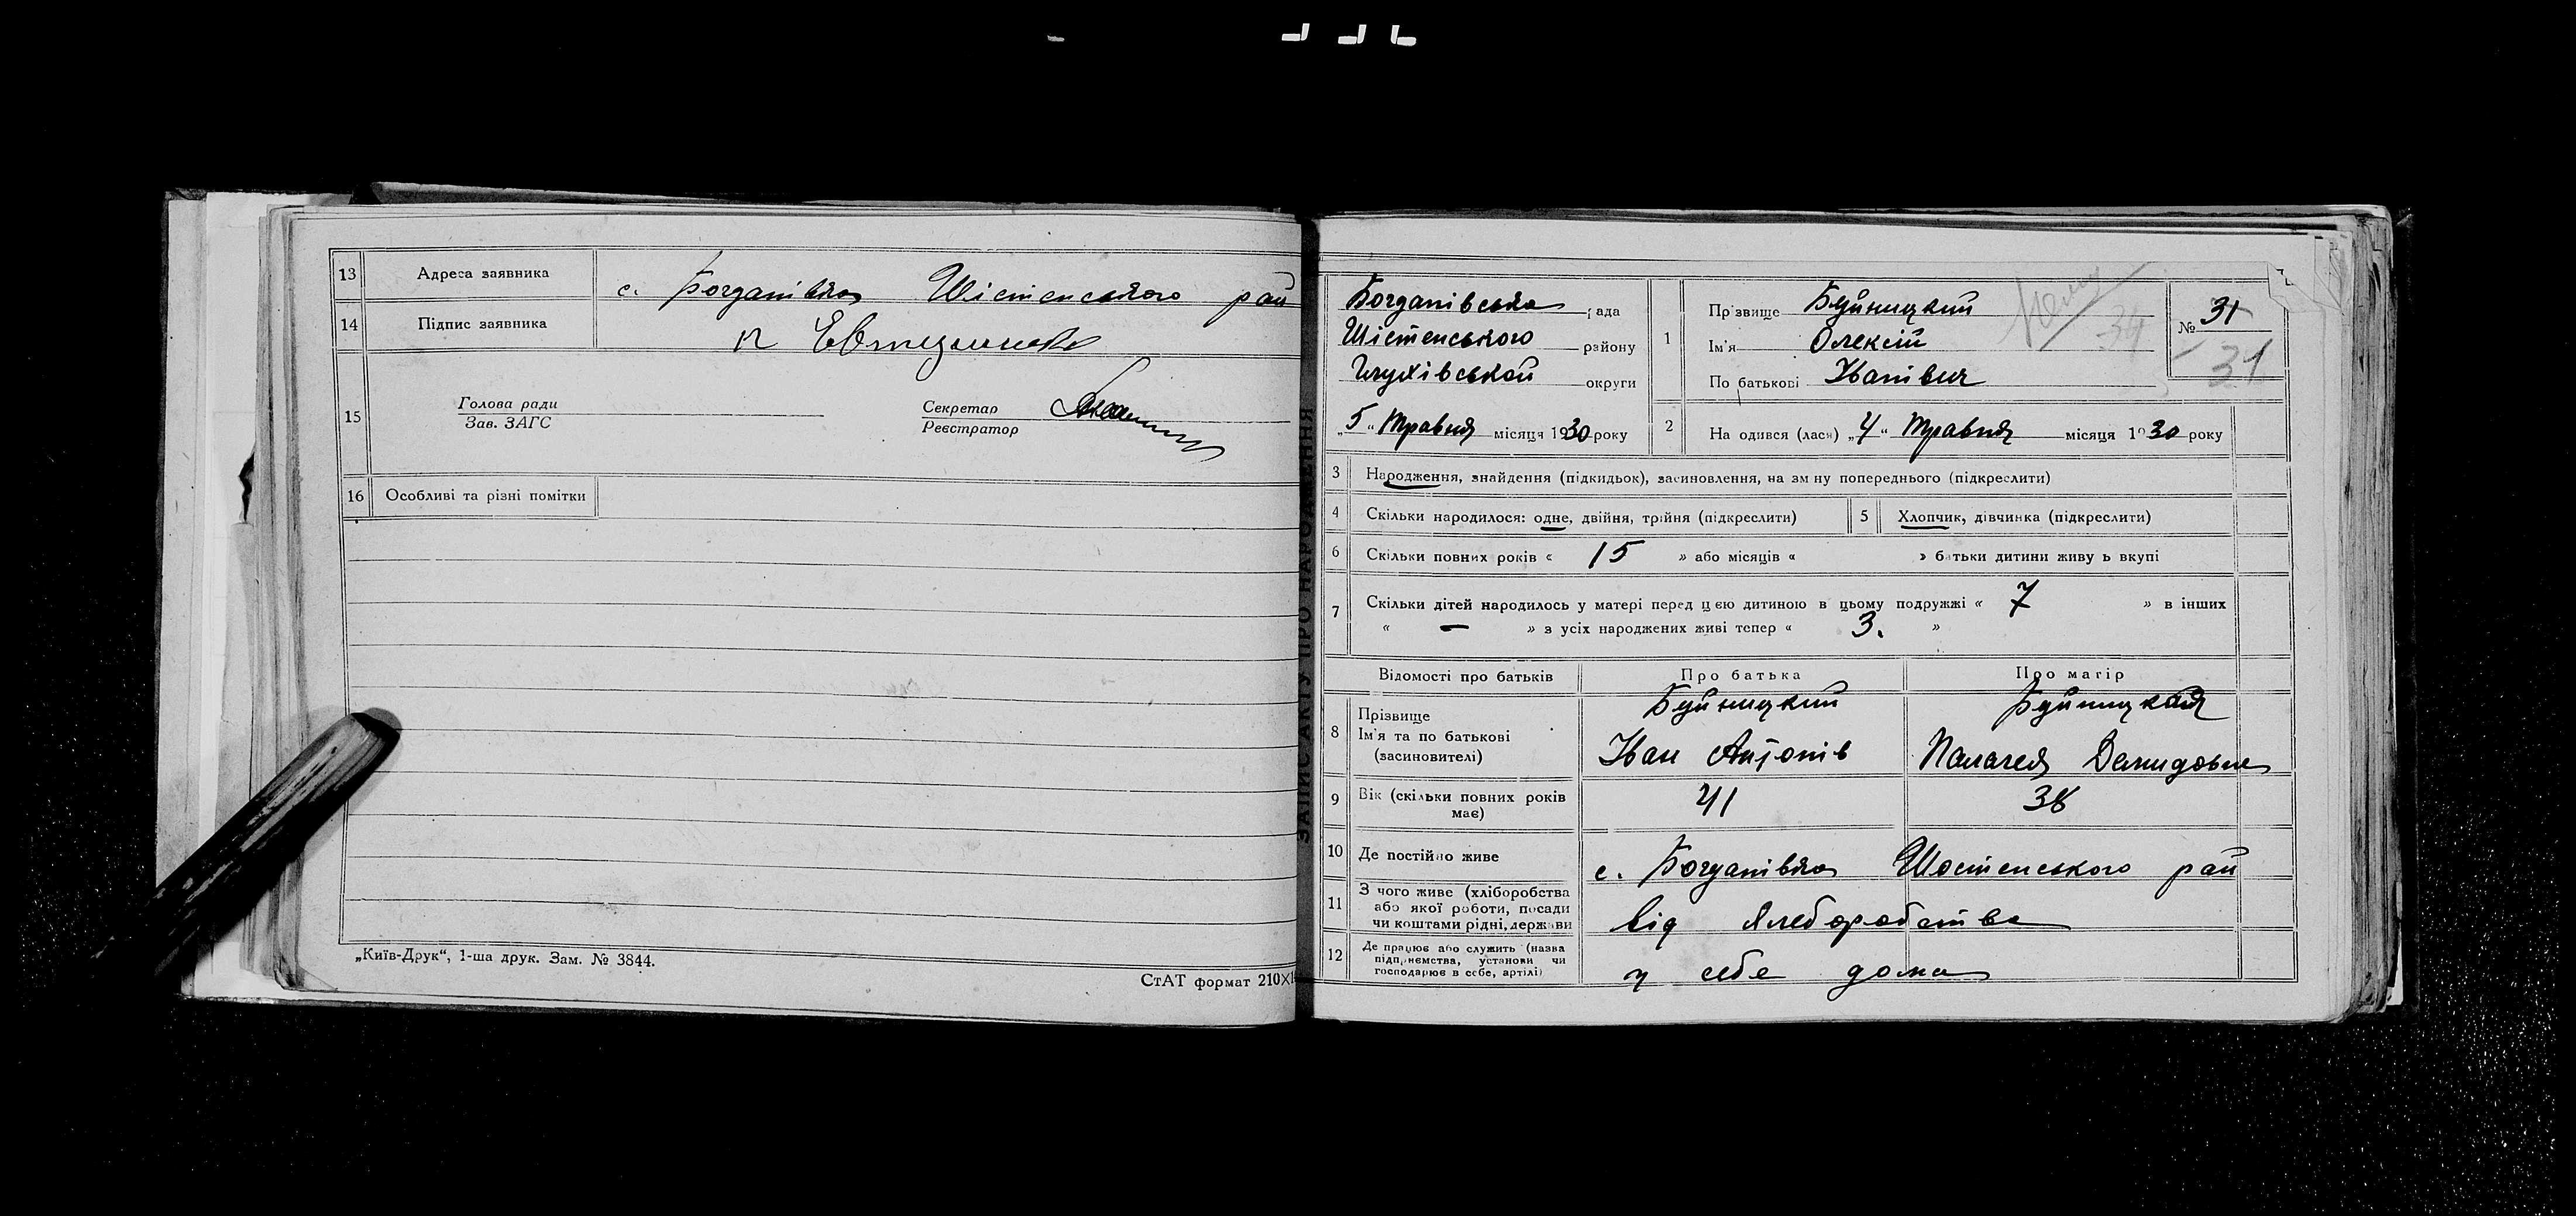 13 Адреса заявника с. Богданівка Шістенського рай
14 Підпис заявника
15 Голова ради
Зав. ЗАГС
Секретар
Реєстратор
16 Особливі та різні помітки
„Київ-Друк“, 1-ша друк. Зам. № 3844.
СтАТ формат 210×1
ЗАПИС АКТУ ПРО НАРОДЖЕННЯ
Богданівська рада
Шістенського району
Глухівської округи
„5“ Травня місяця 1930 року
1 Прізвище Буйницкий
Ім'я Олексій
По батькові Іванівич
№ 31
34
31
2 На одився (лася) „4“ Травня місяця 1930 року
3 Народження, знайдення (підкидьок), засиновлення, на зм ну попереднього (підкреслити)
4 Скільки народилося: одне, двійня, трійня (підкреслити)
5 Хлопчик, дівчинка (підкреслити)
6 Скільки повних років « 15 » або місяців « » батьки дитини живу ь вкупі
7 Скільки дітей народилось у матері перед цією дитиною в цьому подружжі « 7 » в інших
« — » з усіх народжених живі тепер « 3. »
Відомості про батьків Про батька Про матір
8 Прізвище
Ім'я та по батькові
(засиновителі)
Буйницкий
Іван Антонів
Буйницкая
Палагея Демидовна
9 Вік (скільки повних років має) 41 38
10 Де постійно живе с. Богданівка Шостенського рай
11 З чого живе (хліборобства
або якої роботи, посади
чи коштами рідні, держави
від хлеборобства
12 Де працює або служить (назва
підприємства, установи чи
господарює в себе, артілі)
у себе дома